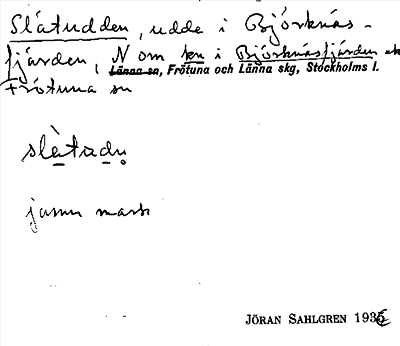 Slätudden, udde i Björknäs-
fjärden, N om kn i Björknäsfjärden ek
Länna sn, Frötuna och Länna skg, Stockholms l.
Frötuna sn
slètudn
jämn mark
JÖRAN SAHLGREN 1935